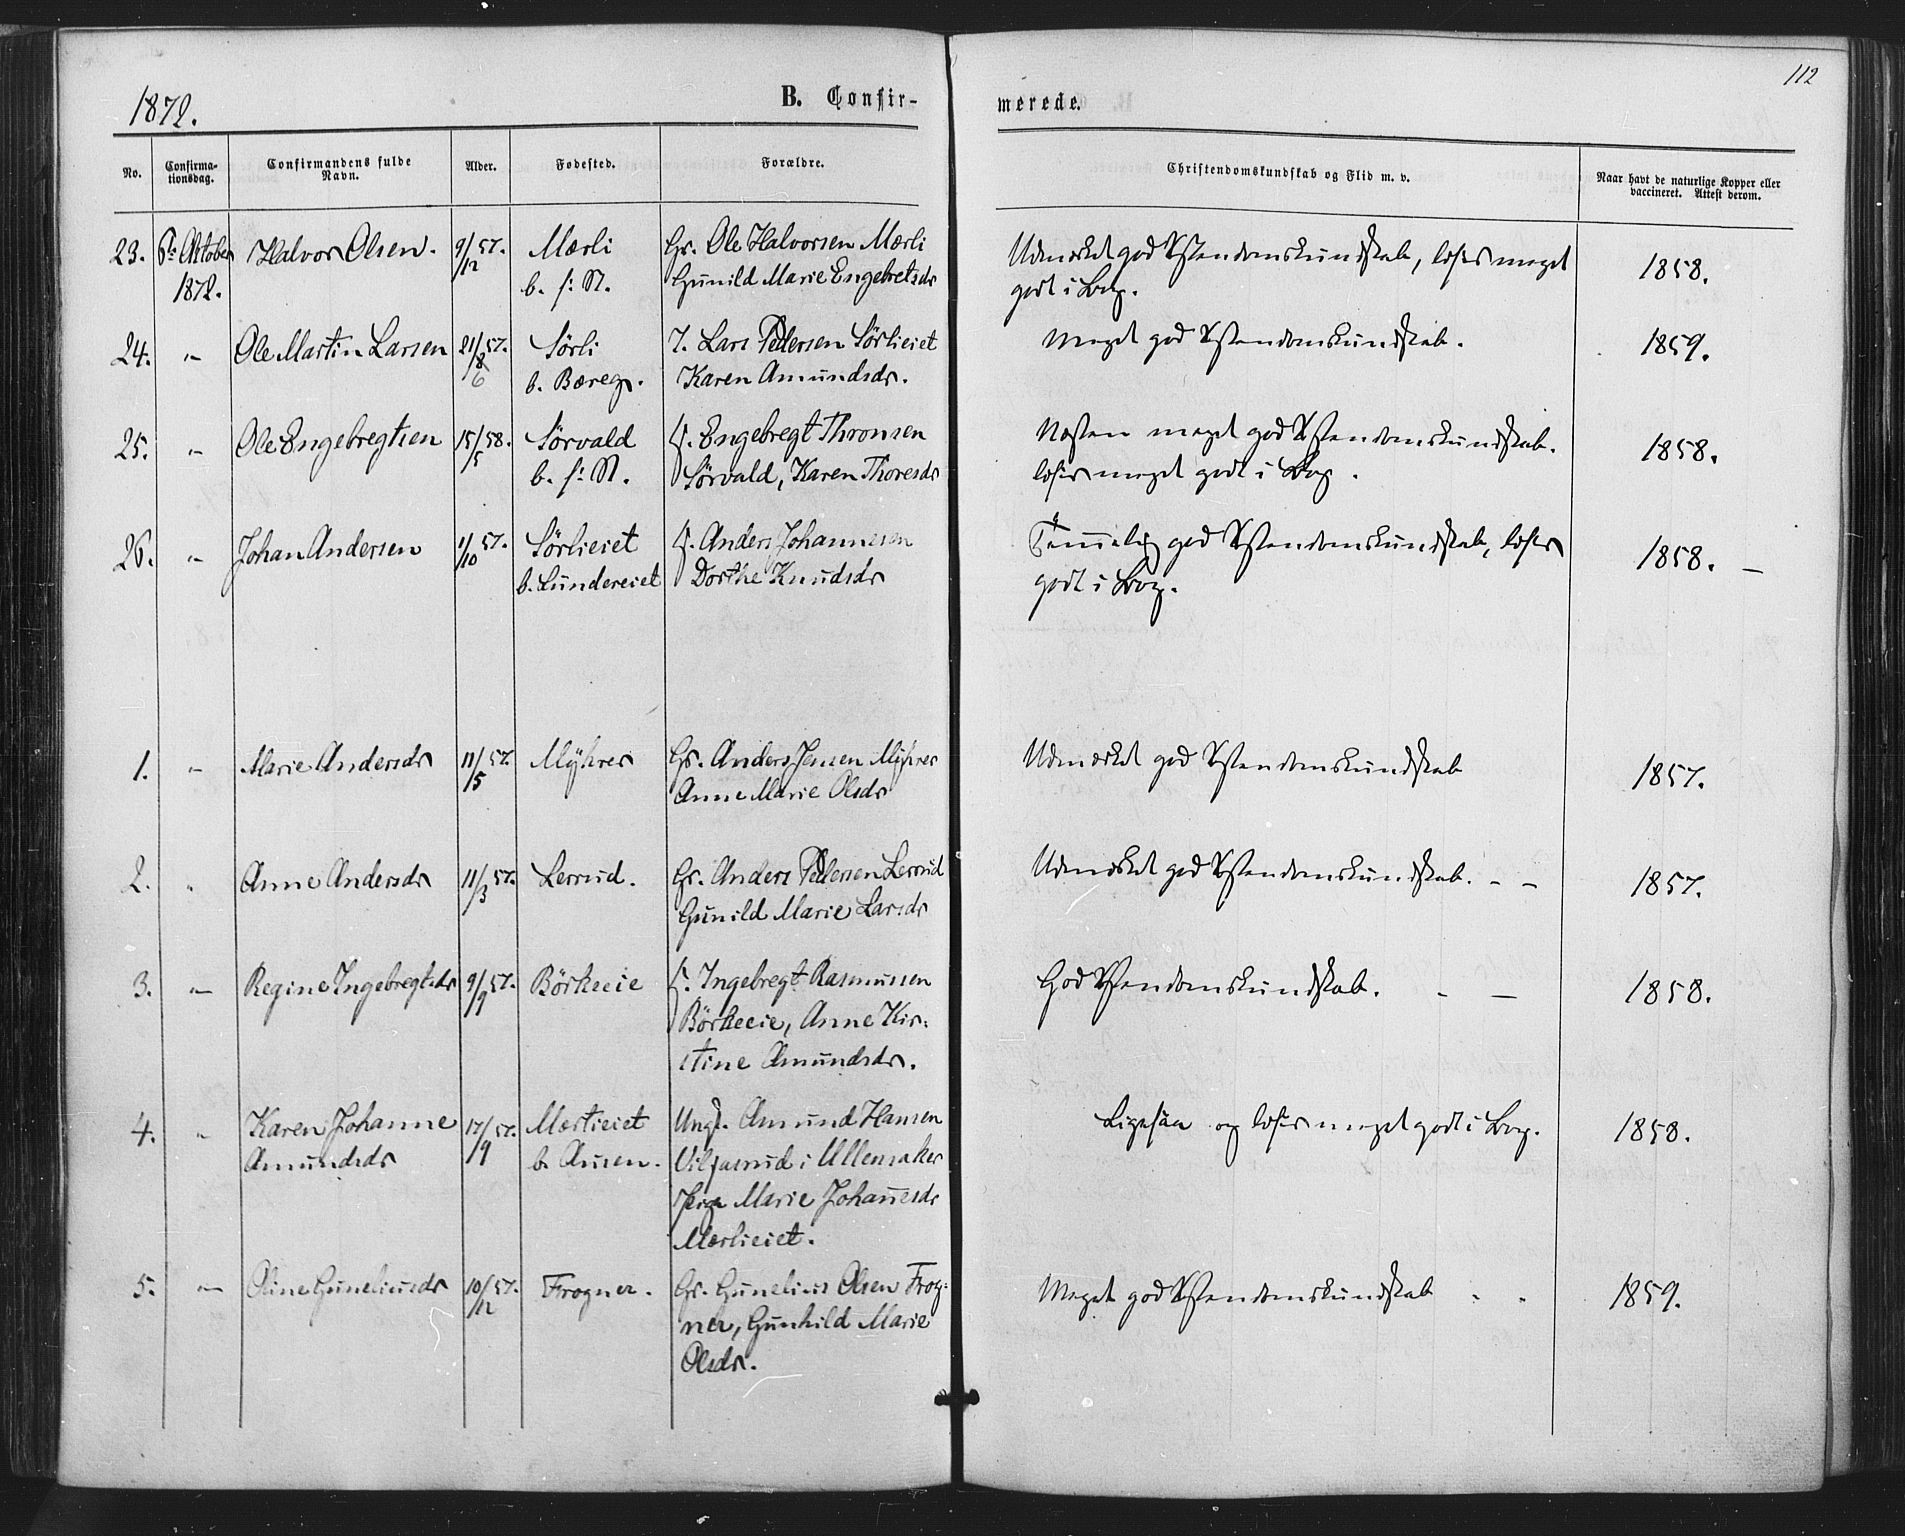 112
1872.
B. Confir-
merede.
No.
Confirma-
tionsdag.
Confirmandens fulde
Navn.
Alder.
Fødested.
Forældre.
Christendomskundskab og Flid m. v.
Naar havt de naturlige Kopper eller
vaccineret. Attest derom.
23. 6te Oktober Halvor Olsen. 9/12 57. Mærli Gr. Ole Halvorsen Mærli Udmærket god Xstendomskundskab, læser meget 1858.
1872. b. f: N. Gunild Marie Engebretsdr godt i Bog.
24. " Ole Martin Larsen 21/8 57. Sörli I. Lars Pedersen Sörlieiet Meget god Xstendomskundskab. 1859.
6 b. Bæreg. Karen Amundsdr.
25. " Ole Engebregtsen 15/5 58. Sörvald F. Engebregt Thronsen Næsten meget god Xstendomskundskab. 1858.
b. f: N. Sörvald, Karen Thoresdr læser meget godt i Bog.
26. " Johan Andersen 1/10 57. Sörlieiet F. Anders Johannesen Temmelig god Xstendomskundskab, læser 1858. –
b. Lundereiet Dorthe Knudsdr godt i Bog.
1. " Marie Andersdr 11/5 57. Myhrer Gr. Anders Jensen Myhrer Udmærket god Xstendomskundskab 1857.
Anne Marie Olsdr
2. " Anne Andersdr 11/3 57. Lerrud. Gr. Anders Pedersen Lerrud Udmærket god Xstendomskundskab. – – 1857.
Gunild Marie Larsdr
3. " Regine Ingebregtsdr 9/9 57. Börkeeie F. Ingebregt Rasmussen God Xstendomskundskab. – – 1858.
Börkeeie, Anne Kir-
stine Amundsdr.
4. " Karen Johanne 17/9 57. Mærlieiet Ungk. Amund Hansen Ligesaa og læser meget godt i Bog. 1858.
Amundsdr b. Ausen. i Ullensaker
Pige Marie Johannesdr
Mærlieiet.
5. " Oline Guneliusdr 10/12 57. Frogner. Gr. Gunelius Olsen Frog- Meget god Xstendomskundskab " " 1859.
ner, Gunhild Marie
Olsdr.